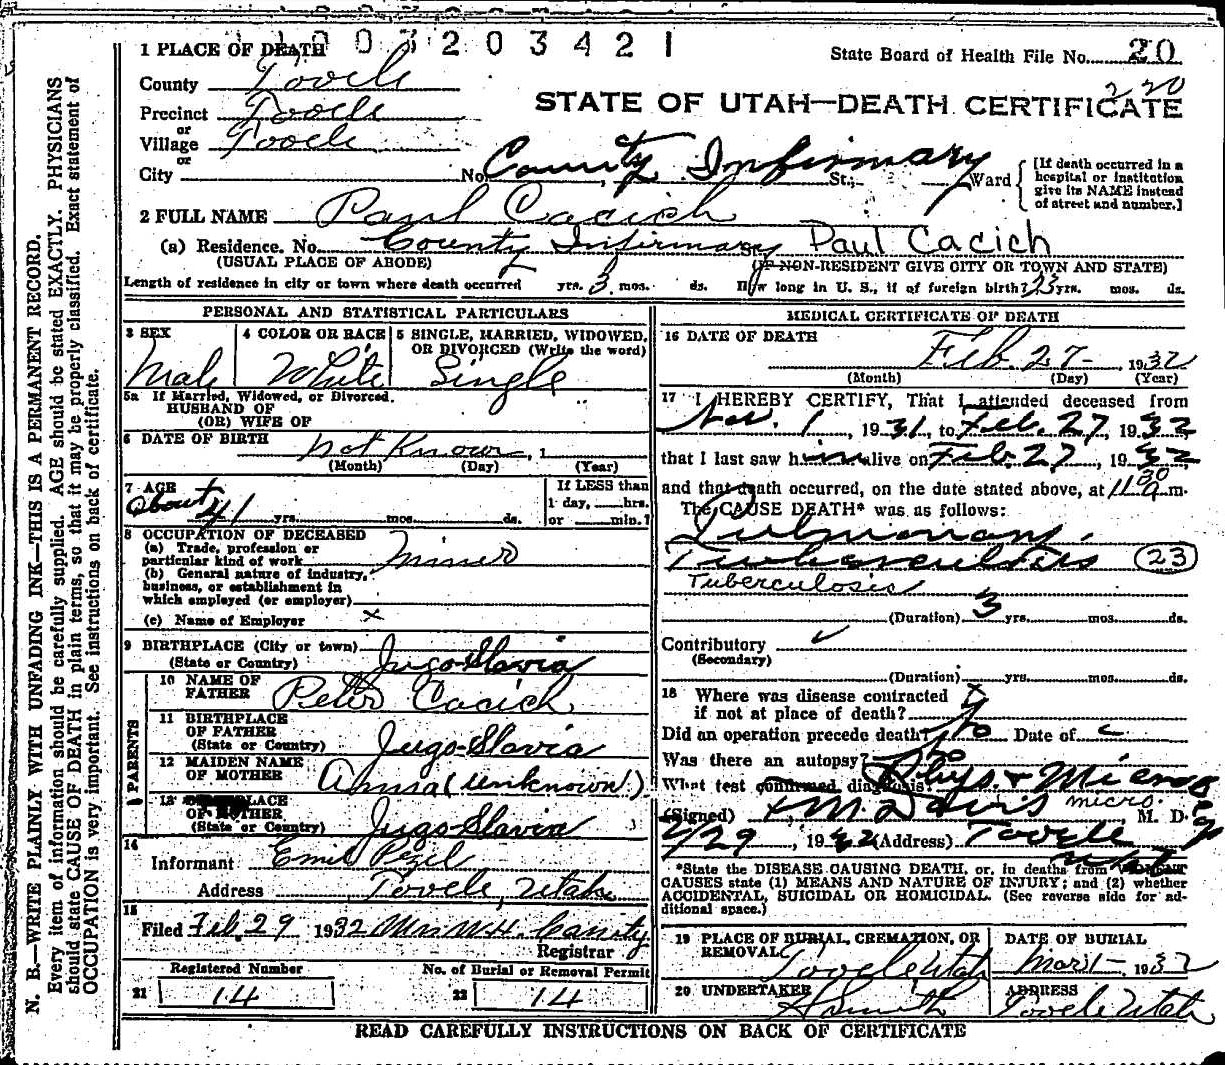 1 PLACE OF DEATH 1 0 0 3 2 0 3 4 2 1
State Board of Health File No. 20
County Tooele
220
Precinct Tooele
STATE OF UTAH—DEATH CERTIFICATE
or
Village Tooele
or
City No. County Infirmary St.; Ward
[If death occurred in a hospital or institution give its NAME instead of street and number.]
2 FULL NAME Paul Cacich
(a) Residence. No. County Infirmary St. Paul Cacich
(USUAL PLACE OF ABODE) (IF NON-RESIDENT GIVE CITY OR TOWN AND STATE)
Length of residence in city or town where death occurred yrs. 3 mos. ds. How long in U. S., if of foreign birth? 23 yrs. mos. ds.
PERSONAL AND STATISTICAL PARTICULARS
3 SEX Male
4 COLOR OR RACE White
5 SINGLE, MARRIED, WIDOWED, OR DIVORCED (Write the word) Single
5a If Married, Widowed, or Divorced.
HUSBAND OF
(OR) WIFE OF
6 DATE OF BIRTH not Known, 1
(Month) (Day) (Year)
7 AGE About 41 yrs. mos. ds.
If LESS than
1 day, hrs.
or min.?
8 OCCUPATION OF DECEASED
(a) Trade, profession or
particular kind of work Miner
(b) General nature of industry,
business, or establishment in
which employed (or employer)
(c) Name of Employer x
9 BIRTHPLACE (City or town)
(State or Country) Jugo-Slavia
PARENTS
10 NAME OF
FATHER Peter Cacich
11 BIRTHPLACE
OF FATHER
(State or Country) Jugo-Slavia
12 MAIDEN NAME
OF MOTHER Anna (unknown)
13 PLACE
OF MOTHER
(State or Country) Jugo-Slavia
14
Informant Emil Pezel
Address Tooele, Utah
15
Filed Feb. 29 1932 Mrs. W.H. Cassity
Registrar
Registered Number No. of Burial or Removal Permit
21 14 22 14
MEDICAL CERTIFICATE OF DEATH
16 DATE OF DEATH
Feb. 27- 1932
(Month) (Day) (Year)
17 I HEREBY CERTIFY, That I attended deceased from
Nov. 1, 1931, to Feb. 27, 1932,
that I last saw him alive on Feb. 27, 1932
and that death occurred, on the date stated above, at 11 30 a m.
The CAUSE DEATH* was as follows:
Pulmonary
Tuberculosis 23
Tuberculosis
(Duration) 3 yrs. mos. ds.
Contributory
(Secondary)
(Duration) yrs. mos. ds.
18 Where was disease contracted
if not at place of death?
Did an operation precede death? No Date of
Was there an autopsy? No
What test confirmed diagnosis? Phys. + Micros
micro.
(Signed) M. Davis M. D.
2/29, 1932 (Address) Tooele
Utah
*State the DISEASE CAUSING DEATH, or, in deaths from
CAUSES state (1) MEANS AND NATURE OF INJURY; and (2) whether
ACCIDENTAL, SUICIDAL OR HOMICIDAL. (See reverse side for ad-
ditional space.)
19 PLACE OF BURIAL, CREMATION, OR
REMOVAL Tooele Utah
DATE OF BURIAL
Mar 1- 1932
20 UNDERTAKER
Smith
ADDRESS
Tooele Utah
READ CAREFULLY INSTRUCTIONS ON BACK OF CERTIFICATE
N. B.—WRITE PLAINLY WITH UNFADING INK—THIS IS A PERMANENT RECORD.
Every item of information should be carefully supplied. AGE should be stated EXACTLY. PHYSICIANS
should state CAUSE OF DEATH in plain terms, so that it may be properly classified. Exact statement of
OCCUPATION is very important. See instructions on back of certificate.